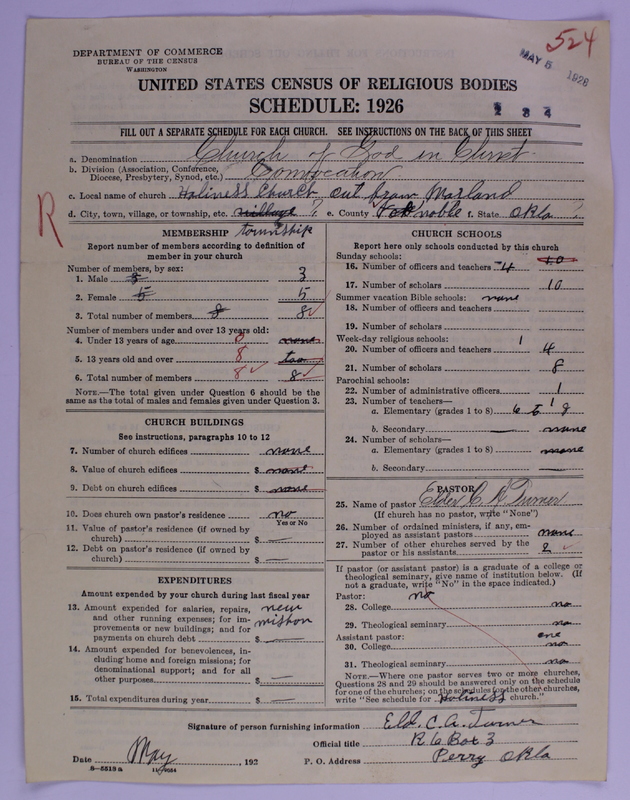 524
MAY 5 1926
DEPARTMENT OF COMMERCE
BUREAU OF THE CENSUS
WASHINGTON
UNITED STATES CENSUS OF RELIGIOUS BODIES
SCHEDULE: 1926
2 3 4
FILL OUT A SEPARATE SCHEDULE FOR EACH CHURCH. SEE INSTRUCTIONS ON THE BACK OF THIS SHEET
a. Denomination Church of God in Christ
b. Division (Association, Conference, Diocese, Presbytery, Synod, etc.) Convocation
c. Local name of church Holiness Church, out from Marland
d. City, town, village, or township, etc. village township e. County noble f. State Okla
R
MEMBERSHIP
Report number of members according to definition of
member in your church
Number of members, by sex:
1. Male 5 3
2. Female 5 5
3. Total number of members 8 8
Number of members under and over 13 years old:
4. Under 13 years of age 0 none
5. 13 years old and over 8
6. Total number of members 8 8
NOTE.—The total given under Question 6 should be
the same as the total of males and females given under Question 3.
CHURCH BUILDINGS
See instructions, paragraphs 10 to 12
7. Number of church edifices none
8. Value of church edifices $ none
9. Debt on church edifices $ none
10. Does church own pastor's residence? no
Yes or No
11. Value of pastor's residence (if owned by
church) $ —
12. Debt on pastor's residence (if owned by
church) $
EXPENDITURES
Amount expended by your church during last fiscal year
13. Amount expended for salaries, repairs, new
and other running expenses; for im- mishon
provements or new buildings; and for
payments on church debt $ —
14. Amount expended for benevolences, in-
cluding home and foreign missions; for
denominational support; and for all
other purposes $ —
15. Total expenditures during year $ —
CHURCH SCHOOLS
Report here only schools conducted by this church
Sunday schools:
16. Number of officers and teachers 4 10
17. Number of scholars 10
Summer vacation Bible schools: none
18. Number of officers and teachers
19. Number of scholars
Week-day religious schools: 1
20. Number of officers and teachers 4
21. Number of scholars 8
Parochial schools:
22. Number of administrative officers 1
23. Number of teachers— 1
a. Elementary (grades 1 to 8) 8
b. Secondary — none
24. Number of scholars—
a. Elementary (grades 1 to 8) none
b. Secondary —
PASTOR
25. Name of pastor Elder C. A. Turner
(If church has no pastor, write "None")
26. Number of ordained ministers, if any, em-
ployed as assistant pastors none
27. Number of other churches served by the
pastor or his assistants 2
If pastor (or assistant pastor) is a graduate of a college or
theological seminary, give name of institution below. (If
not a graduate, write "No" in the space indicated.)
Pastor: no
28. College no
29. Theological seminary no
Assistant pastor: one
30. College no
31. Theological seminary no
NOTE.—Where one pastor serves two or more churches,
Questions 28 and 29 should be answered only on the schedule
for one of the churches; on the schedules for the other churches,
write "See schedule for Holiness church."
Signature of person furnishing information Eld. C. A. Turner
Official title R 6 Box 3
Date May, 192 P. O. Address Perry Okla
8—5513 a